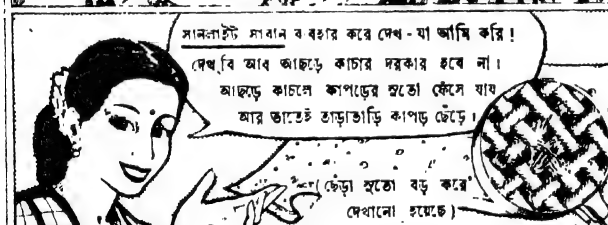 সানলাইট সাবান ব্যবহার করে দেখ - যা আমি করি!
দেখ্‌বি আর আছড়ে কাচার দরকার হবে না।
আছড়ে কাচলে কাপড়ের সুতো ফেঁসে যায়
আর তাতেই তাড়াতাড়ি কাপড় ছেঁড়ে।
(ছেঁড়া সুতো বড় করে
দেখানো হয়েছে)